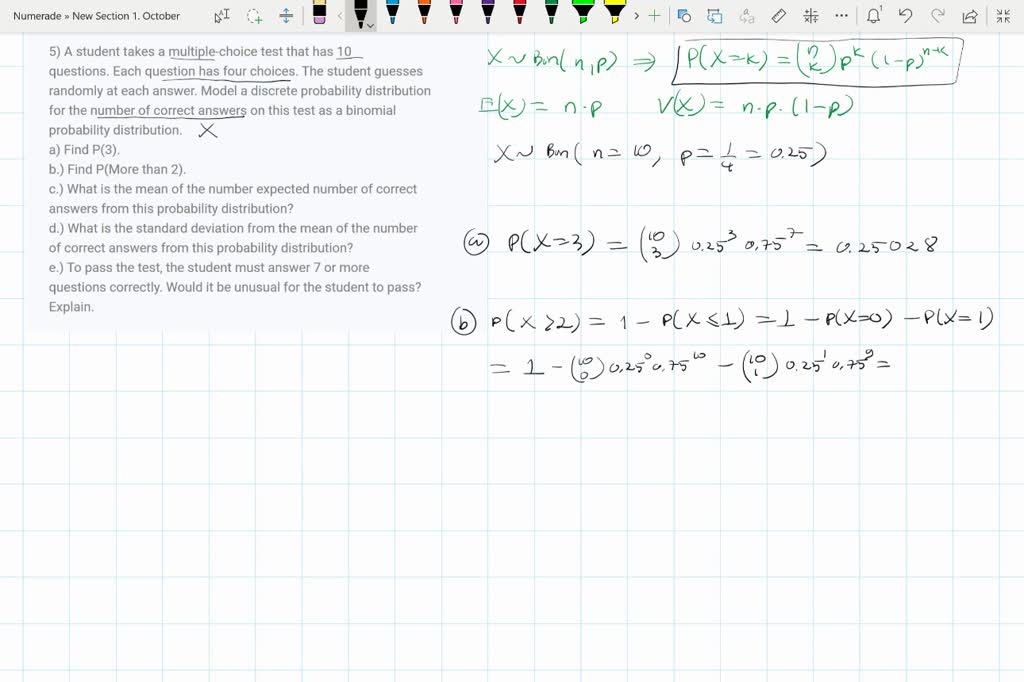 Numerade » New Section 1. October
5) A student takes a multiple-choice test that has 10
questions. Each question has four choices. The student guesses
randomly at each answer. Model a discrete probability distribution
for the number of correct answers on this test as a binomial
probability distribution. X
a) Find P(3).
b.) Find P(More than 2).
c.) What is the mean of the number expected number of correct
answers from this probability distribution?
d.) What is the standard deviation from the mean of the number
of correct answers from this probability distribution?
e.) To pass the test, the student must answer 7 or more
questions correctly. Would it be unusual for the student to pass?
Explain.
X ~ Bin(n,p) ⇒ P(X=k) = (n k) p^k (1-p)^n-k
E(X) = n·p V(X) = n·p·(1-p)
X ~ Bin(n = 10, p = 1/4 = 0.25)
(a) P(X=3) = (10 3) 0.25^3 0.75^7 = 0.25028
(b) P(X>2) = 1 - P(X≤1) = 1 - P(X=0) - P(X=1)
= 1 - (10 0) 0.25^0 0.75^10 - (10 1) 0.25^1 0.75^9 =